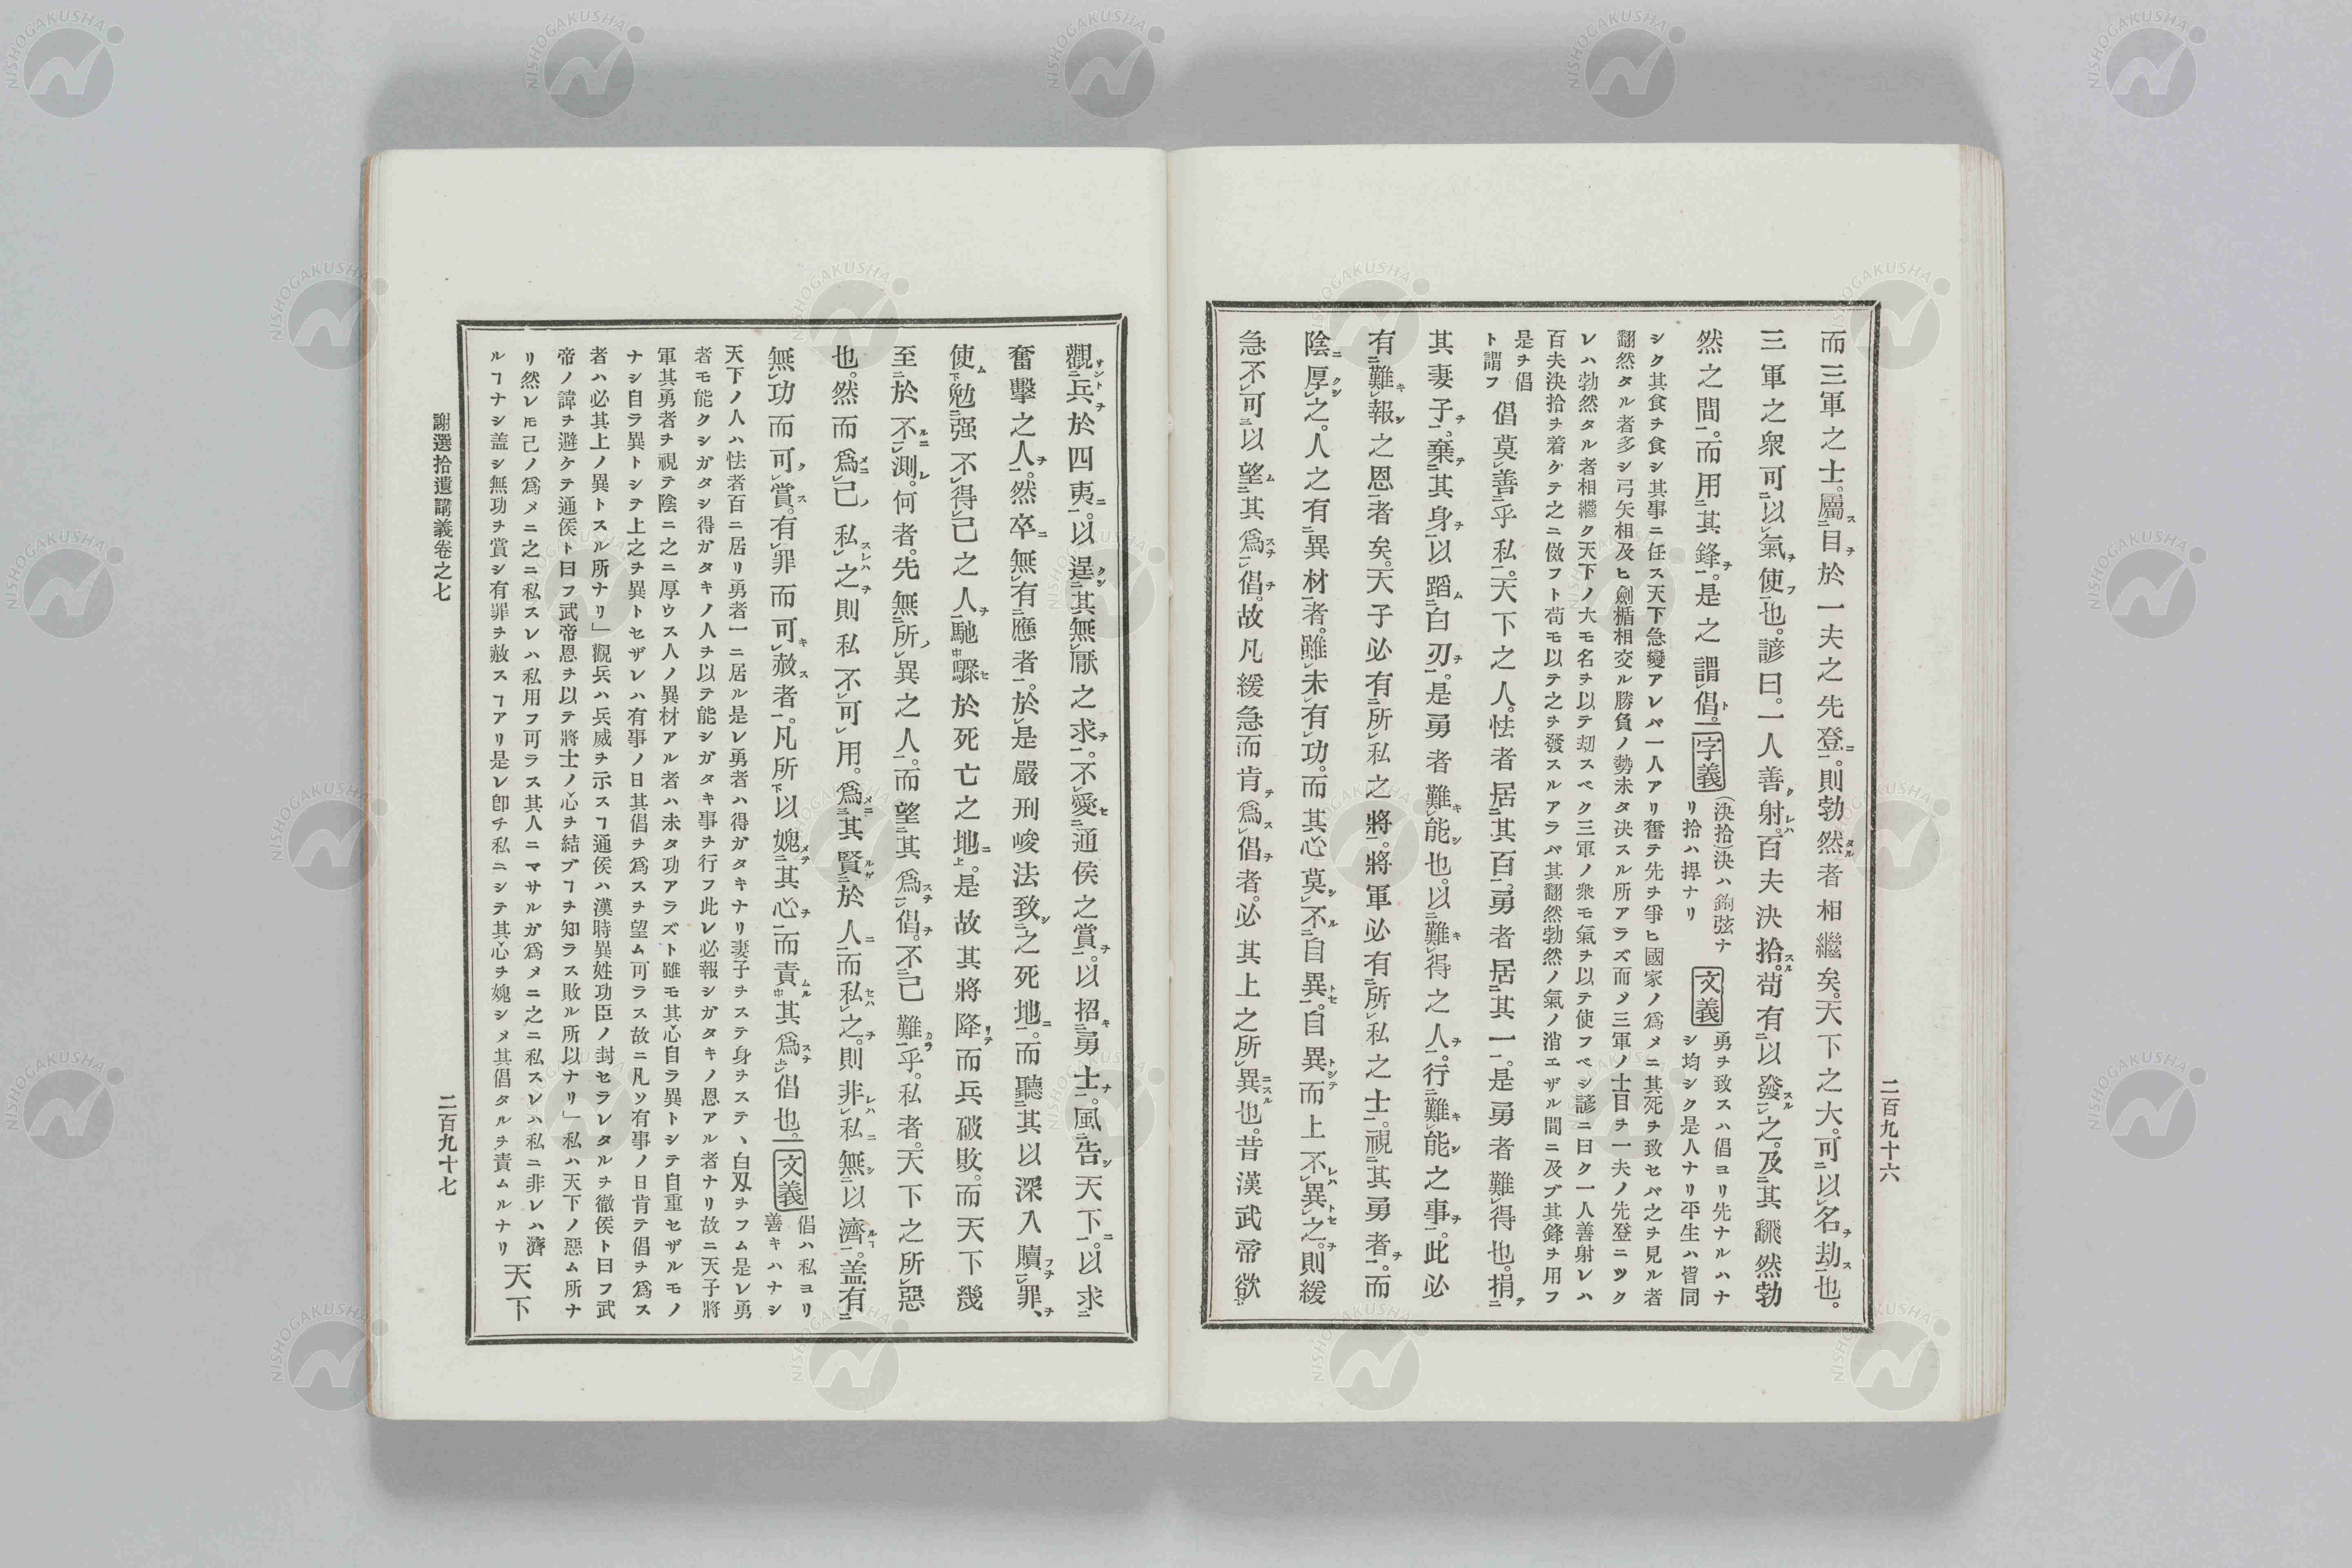 二百九十六
而三軍之士。屬目於一夫之先登。則勃然者相繼矣。天下之大。可以名劫也。
三軍之衆可以氣使也。諺曰。一人善射。百夫決拾。苟有以發之。及其翻然勃
然之間。而用其鋒。是之謂倡。字義(決拾)決ハ鉤弦ナリ拾ハ捍ナリ 文義 勇ヲ致スハ倡ヨリ先ナルハナシ均シク是人ナリ平生ハ皆同
シク其食ヲ食シ其事ニ任ス天下急變アレバ一人アリ奮テ先ヲ爭ヒ國家ノ爲メニ其死ヲ致セバ之ヲ見ル者
翻然タル者多シ弓矢相及ヒ劍楯相交ル勝負ノ勢未タ決スル所アラズ而〆三軍ノ士目ヲ一夫ノ先登ニツク
レハ勃然タル者相繼ク天下ノ大モ名ヲ以テ劫スベク三軍ノ衆モ氣ヲ以テ使フベシ諺ニ曰ク一人善射レハ
百夫決拾ヲ着ケテ之ニ倣フト苟モ以テ之ヲ發スルアラバ其翻然勃然ノ氣ノ消エザル間ニ及ブ其鋒ヲ用フ
是ヲ倡ト謂フ 倡莫善乎私。天下之人。怯者居其百。勇者居其一。是勇者難得也。捐
其妻子。棄其身。以蹈白刃。是勇者難能也。以難得之人。行難能之事。此必
有難報之恩者矣。天子必有所私之將。將軍必有所私之士。視其勇者。而
陰厚之。人之有異材者。雖未有功。而其心莫不自異。自異而上不異之。則緩
急不可以望其爲倡。故凡緩急而肯爲倡者。必其上之所異也。昔漢武帝欲
觀兵於四夷。以逞其無厭之求。不愛通侯之賞。以招勇士。風告天下。以求
奮擊之人。然卒無有應者。於是嚴刑峻法致之死地。而聽其以深入贖罪、
使勉强不得已之人。馳驟於死亡之地。是故其將降而兵破敗。而天下幾
至於不測。何者。先無所異之人。而望其爲倡。不已難乎。私者。天下之所惡
也。然而爲己私之則私不可用。爲其賢於人而私之。則非私無以濟。盖有
無功而可賞。有罪而可赦者。凡所以媿其心而責其爲倡也。文義 倡ハ私ヨリ善キハナシ
天下ノ人ハ怯者百ニ居リ勇者一ニ居ル是レ勇者ハ得ガタキナリ妻子チステ身チステヽ白刄ヲフム是レ勇
者モ能クシガタシ得ガタキノ人ヲ以テ能シガタキ事ヲ行フ此レ必報シガタキノ恩アル者ナリ故ニ天子將
軍其勇者ヲ視テ陰ニ之ニ厚ウス人ノ異材アル者ハ未タ功アラズト雖モ其心自ラ異トシテ自重セザルモノ
ナシ自ラ異トシテ上之ヲ異トセザレハ有事ノ日其倡ヲ爲スヲ望ム可ラス故ニ凡ソ有事ノ日肯テ倡ヲ爲ス
者ハ必其上ノ異トスル所ナリ」觀兵ハ兵威ヲ示スヿ通侯ハ漢時異姓功臣ノ封セラレタルヲ徹侯ト曰フ武
帝ノ諱ヲ避ケテ通侯ト曰フ武帝恩ヲ以テ將士ノ心ヲ結ブヿヲ知ラス敗ル所以ナリ」私ハ天下ノ惡ム所ナ
リ然レㇳモ己ノ爲メニ之ニ私スレハ私用フ可ラス其人ニマサルガ爲メニ之ニ私スレハ私ニ非レハ濟
ルヿナシ盖シ無功ヲ賞シ有罪ヲ赦スヿアリ是レ卽チ私ニシテ其心ヲ媿シメ其倡タルヲ責ムルナリ 天下
謝選拾遺講義卷之七
二百九十七